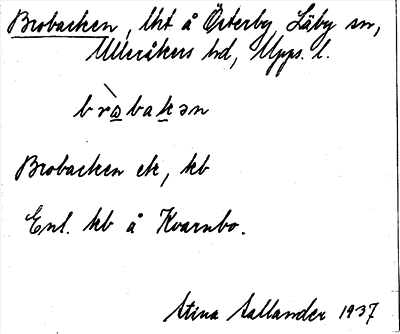 Brobacken, lht å Österby, Läby sn,
Ulleråkers hd, Upps. l.
bròbakən
Brobacken ek, kb
Enl. kb å Kvarnbo.
Stina Sallander 1937